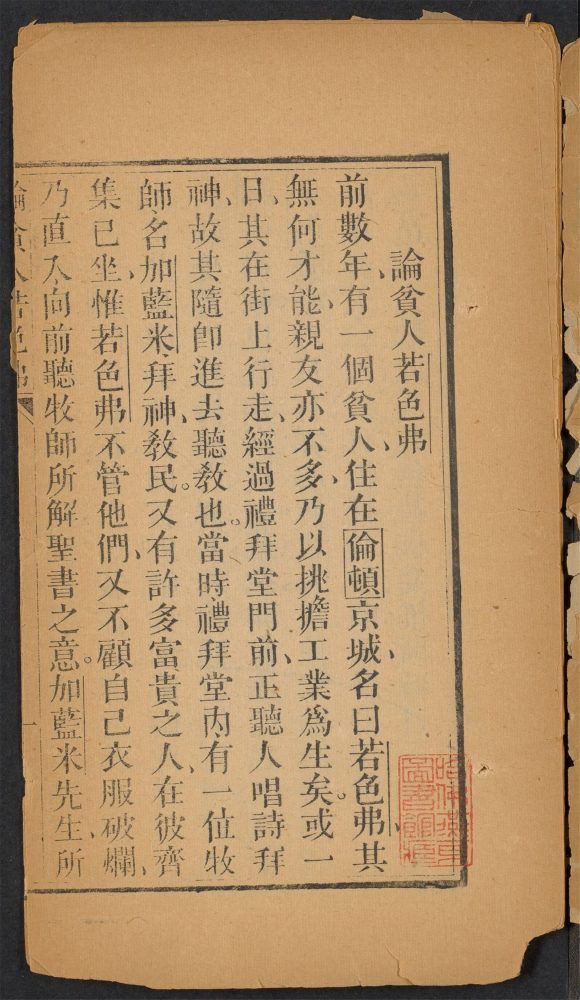 論貧人若色弗
前數年、有一個貧人、住在倫頓京城、名曰若色弗、其
無何才能、親友亦不多、乃以挑擔工業爲生矣。或一
日、其在街上行走、經過禮拜堂門前、正聽人唱詩拜
神、故其隨卽進去聽教也。當時禮拜堂內、有一位牧
師、名加藍米、拜神、教民。又有許多富貴之人、在彼齊
集已坐、惟若色弗不管他們、又不顧自己衣服破爛、
乃直入向前聽牧師所解聖書之意。加藍米先生所
論貧人若色弗
一